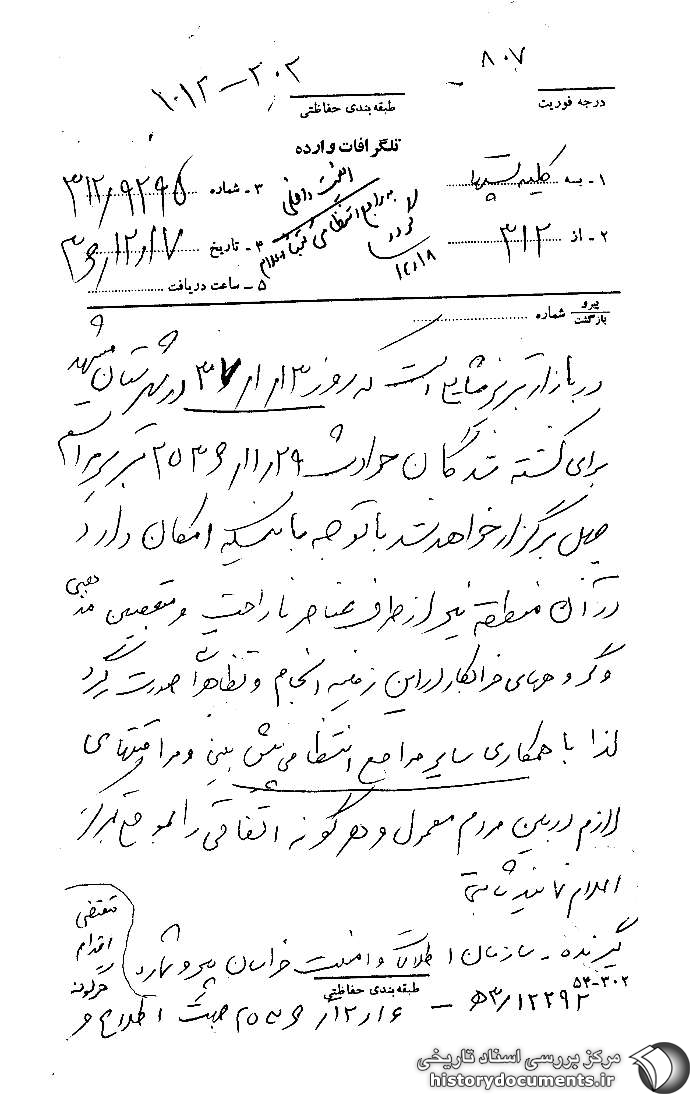 ۸۰۷
۱۰۱۲ – ۳۰۲
درجه فوریت
طبقه‌بندی حفاظتی
تلگرافات وارده
۱ - به کلیه
۳ - شماره ۳۱۲/۹۲۹۵
امنیت داخلی
به مراجع انتظامی کتبا اعلام
گردد
۱۲/۱۸
۲ - از ۳۱۲
۴ - تاریخ ۳۶/۱۲/۱۷
۵ - ساعت دریافت
پیرو
بازگشت
شماره
در بازار تبریز شایع است که روز ۳۷/۱/۱۳ در شهرستان مشهد و
برای کشته شدگان حوادث ۲۵۳۶/۱۱/۲۹ تبریز مراسم
چهل برگزار خواهد شد با توجه باینکه امکان دارد
در آن منطقه نیز از طرف عناصر ناراحت و متعصبین مذهبی
و گروههای خرابکار در این زمینه انجام و تظاهراتی صورت گیرد
لذا با همکاری سایر مراجع انتظامی پیش بینی و مراقبتهای
لازم در بین مردم معمول و هر گونه اتفاقی را بموقع بمرکز
اعلام نمایند ثابتی
گیرنده - سازمان اطلاعات و امنیت خراسان پیرو شماره
طبقه‌بندی حفاظتی
۵۴-۳۰۲
۳/۱۲۲۹۲ه – ۲۵۳۶/۱۲/۱۶ جهت اطلاع و
مقتضی
اقدام
مرکز بررسی اسناد تاریخی
historydocuments.ir